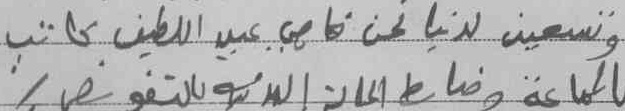 وتسعين لدنيا نحن قاضي عبد اللطيف كاتب
الجماعة وضابط الحالة المدنية بالتفويض /